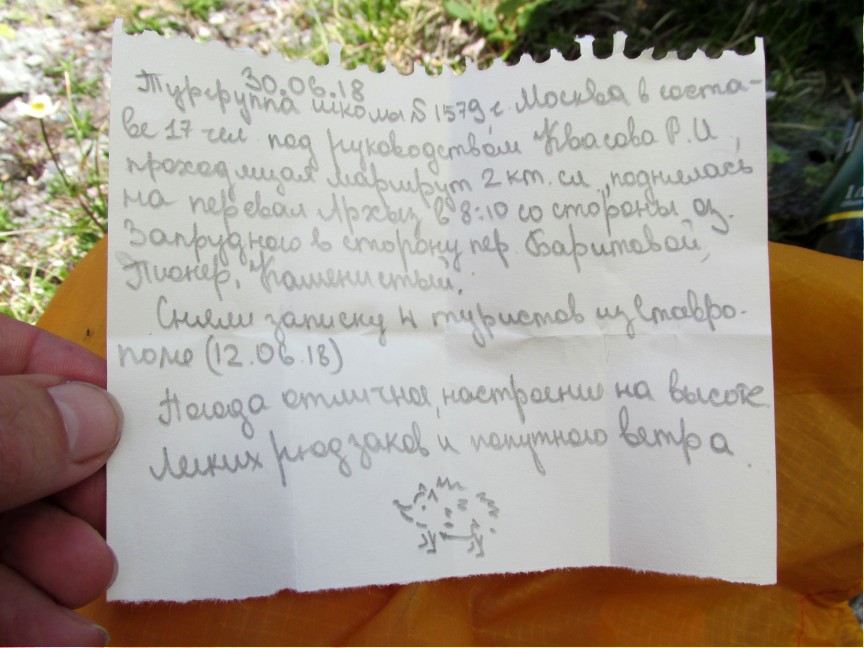 30.06.18
Тургруппа школы № 1579 г. Москва в соста-
ве 17 чел под руководством Квасова Р.И,
проходящая маршрут 2 кт. сл., поднялась
на перевал Архыз в 8:10 со стороны оз.
Запрудного в сторону пер. Баритовый,
Пионер, Каменистый.
Сняли записку 4 туристов из Ставро-
поля (12.06.18)
Погода отличная, настроение на высоте.
Легких рюдзаков и попутного ветра.